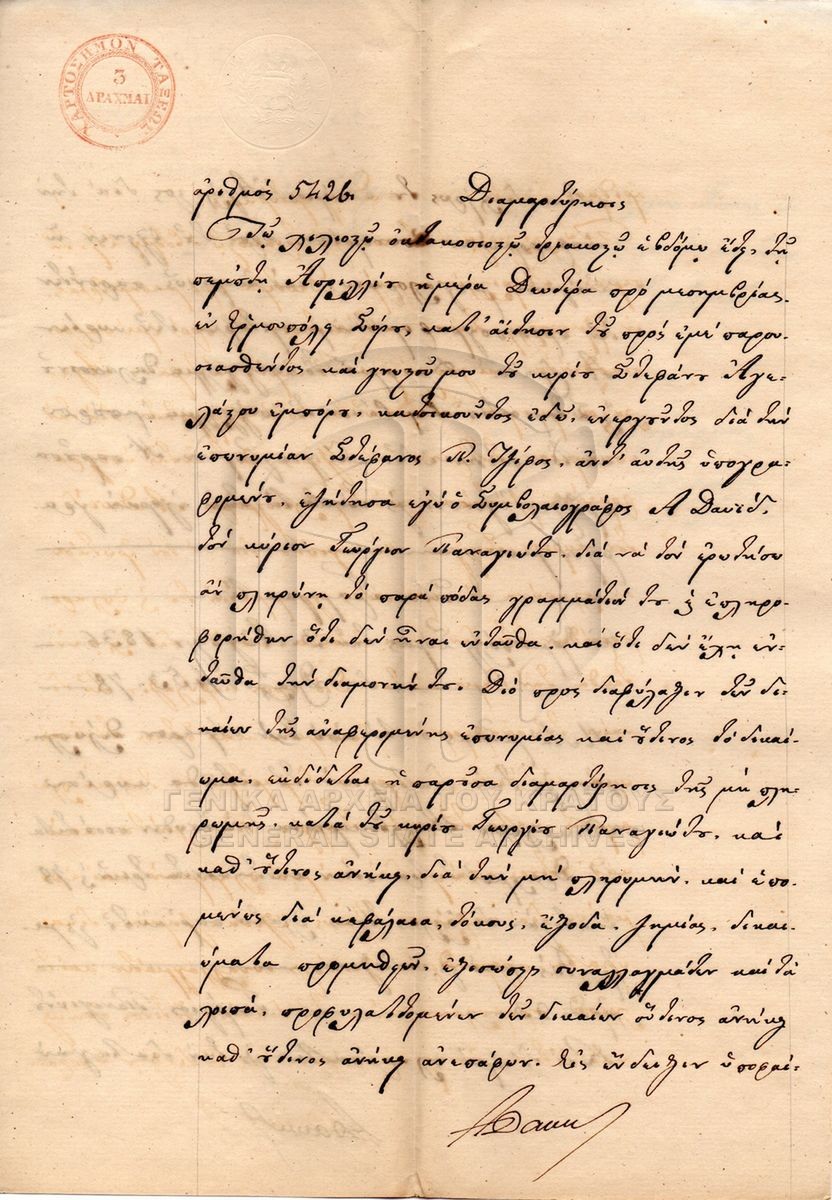 ΧΑΡΤΟΣΗΜΟΝ ΤΑΞΕΩΣ
3
ΔΡΑΧΜΑΙ
ἀριθμός 5426. Διαμαρτύρησις
Τῷ χιλιοστῷ ὀκτακοσιοστῷ τριακοστῷ ἑβδόμῳ ἔτει, τῇ
πέμπτῃ Ἀπριλλίου ἡμέρᾳ Δευτέρᾳ πρό μεσημβρίας,
ἐν Ἑρμουπόλει Σύρου, κατ' αἴτησιν τοῦ πρός ἐμέ παρου-
σιασθέντος καί γνωστοῦ μου τοῦ κυρίου Στεφάνου Ἀγε-
λάστου ἐμπόρου, κατοικοῦντος ἐδῶ, ἐνεργοῦντος διά τήν
ἐπωνυμίαν Στέφανος Π. ἀντ' αὐτῆς ὑπογρα-
φομένου, ἐζήτησα ἐγώ ὁ Συμβολαιογράφος Α Δαυίδ,
τόν κύριον Γεώργιον Παναγιώτου, διά νά τόν ἐρωτήσω
ἄν πληρώνῃ τό παρά πόδας γραμμάτιόν του ἐπληρο-
φορήθην ὅτι δέν ἦναι ἐνταῦθα, καί ὅτι δέν ἔχει ἐν-
ταῦθα τήν διαμονήν του. Διό πρός διαφύλαξιν τῶν δι-
καίων τῆς ἀναφερομένης ἐπωνυμίας καί οὗτινος τό δικαί-
ωμα, ἐκδίδεται ἡ παροῦσα διαμαρτύρησις τῆς μή πλη-
ρωμῆς, κατά τοῦ κυρίου Γεωργίου Παναγιώτου, καί
καθ' οὗτινος ἀνήκει, διά τήν μή πληρωμήν, καί ἑπο-
μένως διά κεφάλαια, τόκους, ἔξοδα, ζημίας, δικαι-
ώματα προμηθειῶν, συναλλαγμάτων καί τά
λοιπά, προφυλαττομένων τῶν δικαίων οὗτινος ἀνήκει
καθ' οὗτινος ἀνήκει ἀνεπάφων. Εἰς ἔνδειξιν
ΓΕΝΙΚΑ ΑΡΧΕΙΑ ΤΟΥ ΚΡΑΤΟΥΣ
GENERAL STATE ARCHIVES